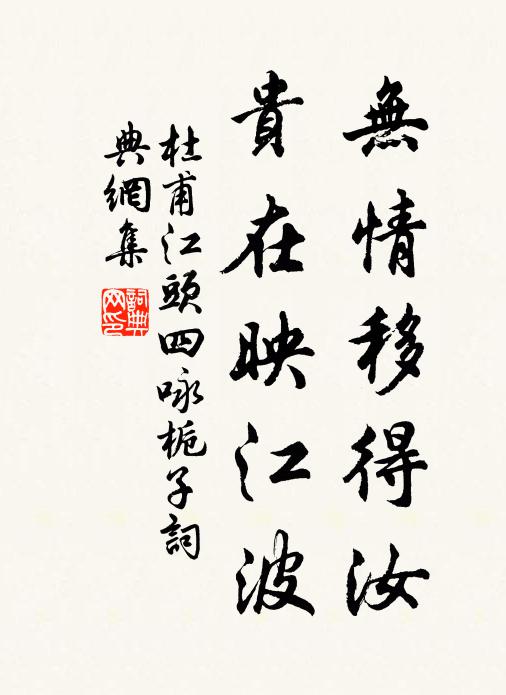 無情移得汝
貴在映江波
杜甫江頭四咏栀子詞
典網集
詞典
网印